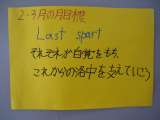 2・3月の月目標
Last spart
それぞれが自覚をもち、
これからの洛中を支えていこう